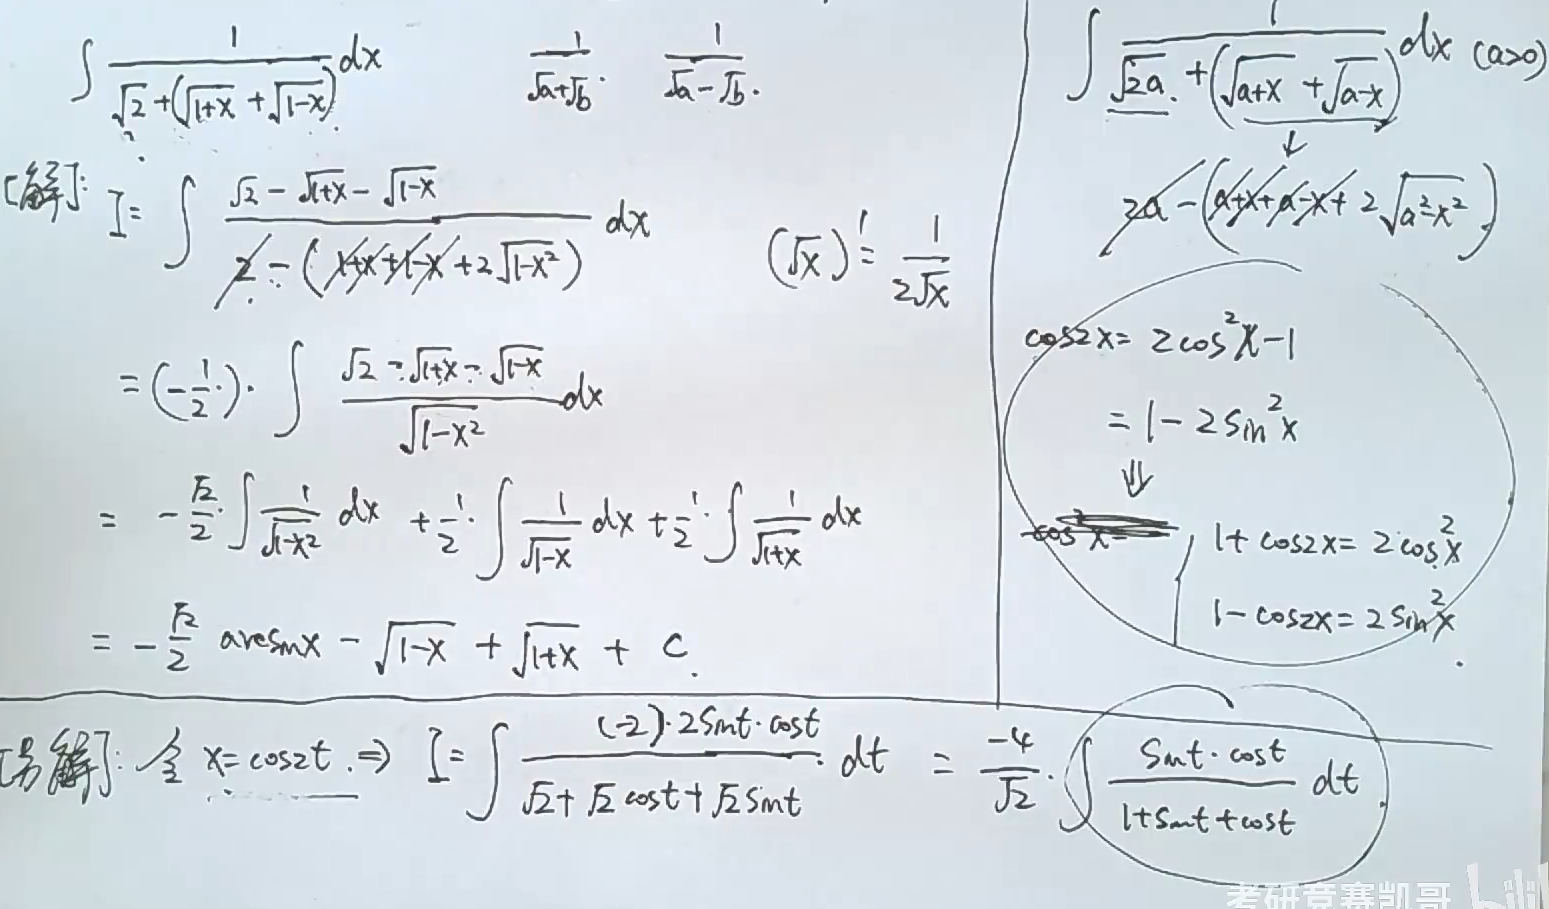 ∫ 1/(√2+(√(1+x)+√(1-x))) dx    1/(√a+√b).    1/(√a-√b).
[解]: I = ∫ (√2-√(1+x)-√(1-x))/(2-(1+x+1-x+2√(1-x²))) dx    (√x)' = 1/(2√x)
= (-1/2)· ∫ (√2-√(1+x)-√(1-x))/√(1-x²) dx
= -√2/2·∫ 1/√(1-x²) dx + 1/2·∫ 1/√(1-x) dx + 1/2·∫ 1/√(1+x) dx
= -√2/2 arcsinx - √(1-x) + √(1+x) + C.
∫ 1/(√(2a)+(√(a+x)+√(a-x))) dx (a>0)
↓
2a-(a+x+a-x+2√(a²-x²))
cos2x = 2cos²x-1
= 1-2sin²x
⇓
cos²x=
1+cos2x = 2cos²x
1-cos2x = 2sin²x.
[另解]: 令 x=cos2t. ⇒ I = ∫ (-2)·2sint·cost/(√2+√2cost+√2sint) dt = -4/√2·∫ sint·cost/(1+sint+cost) dt
考研竞赛凯哥 bilibili